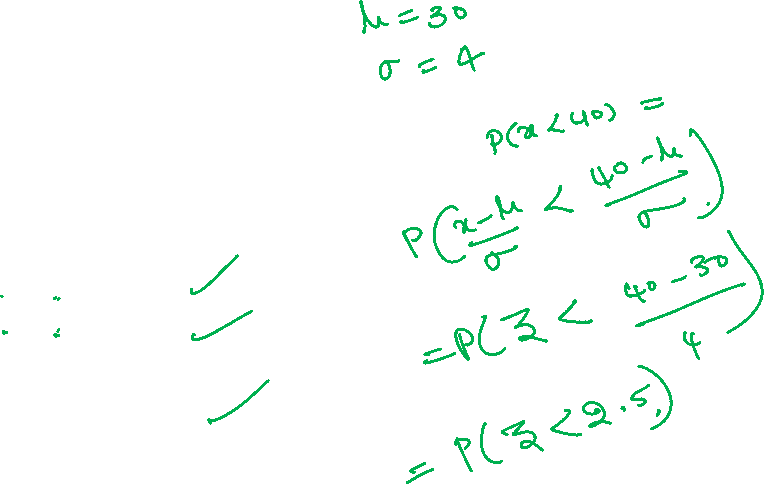 μ = 30
σ = 4
P(x < 40) =
P((x - μ)/σ < (40 - μ)/σ)
= P(z < (40 - 30)/4)
= P(z < 2.5)